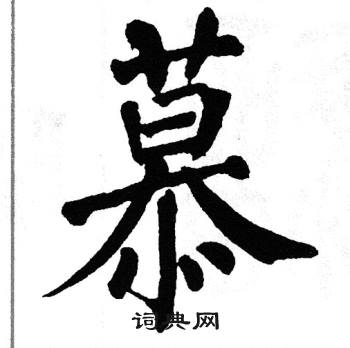 慕
词典网